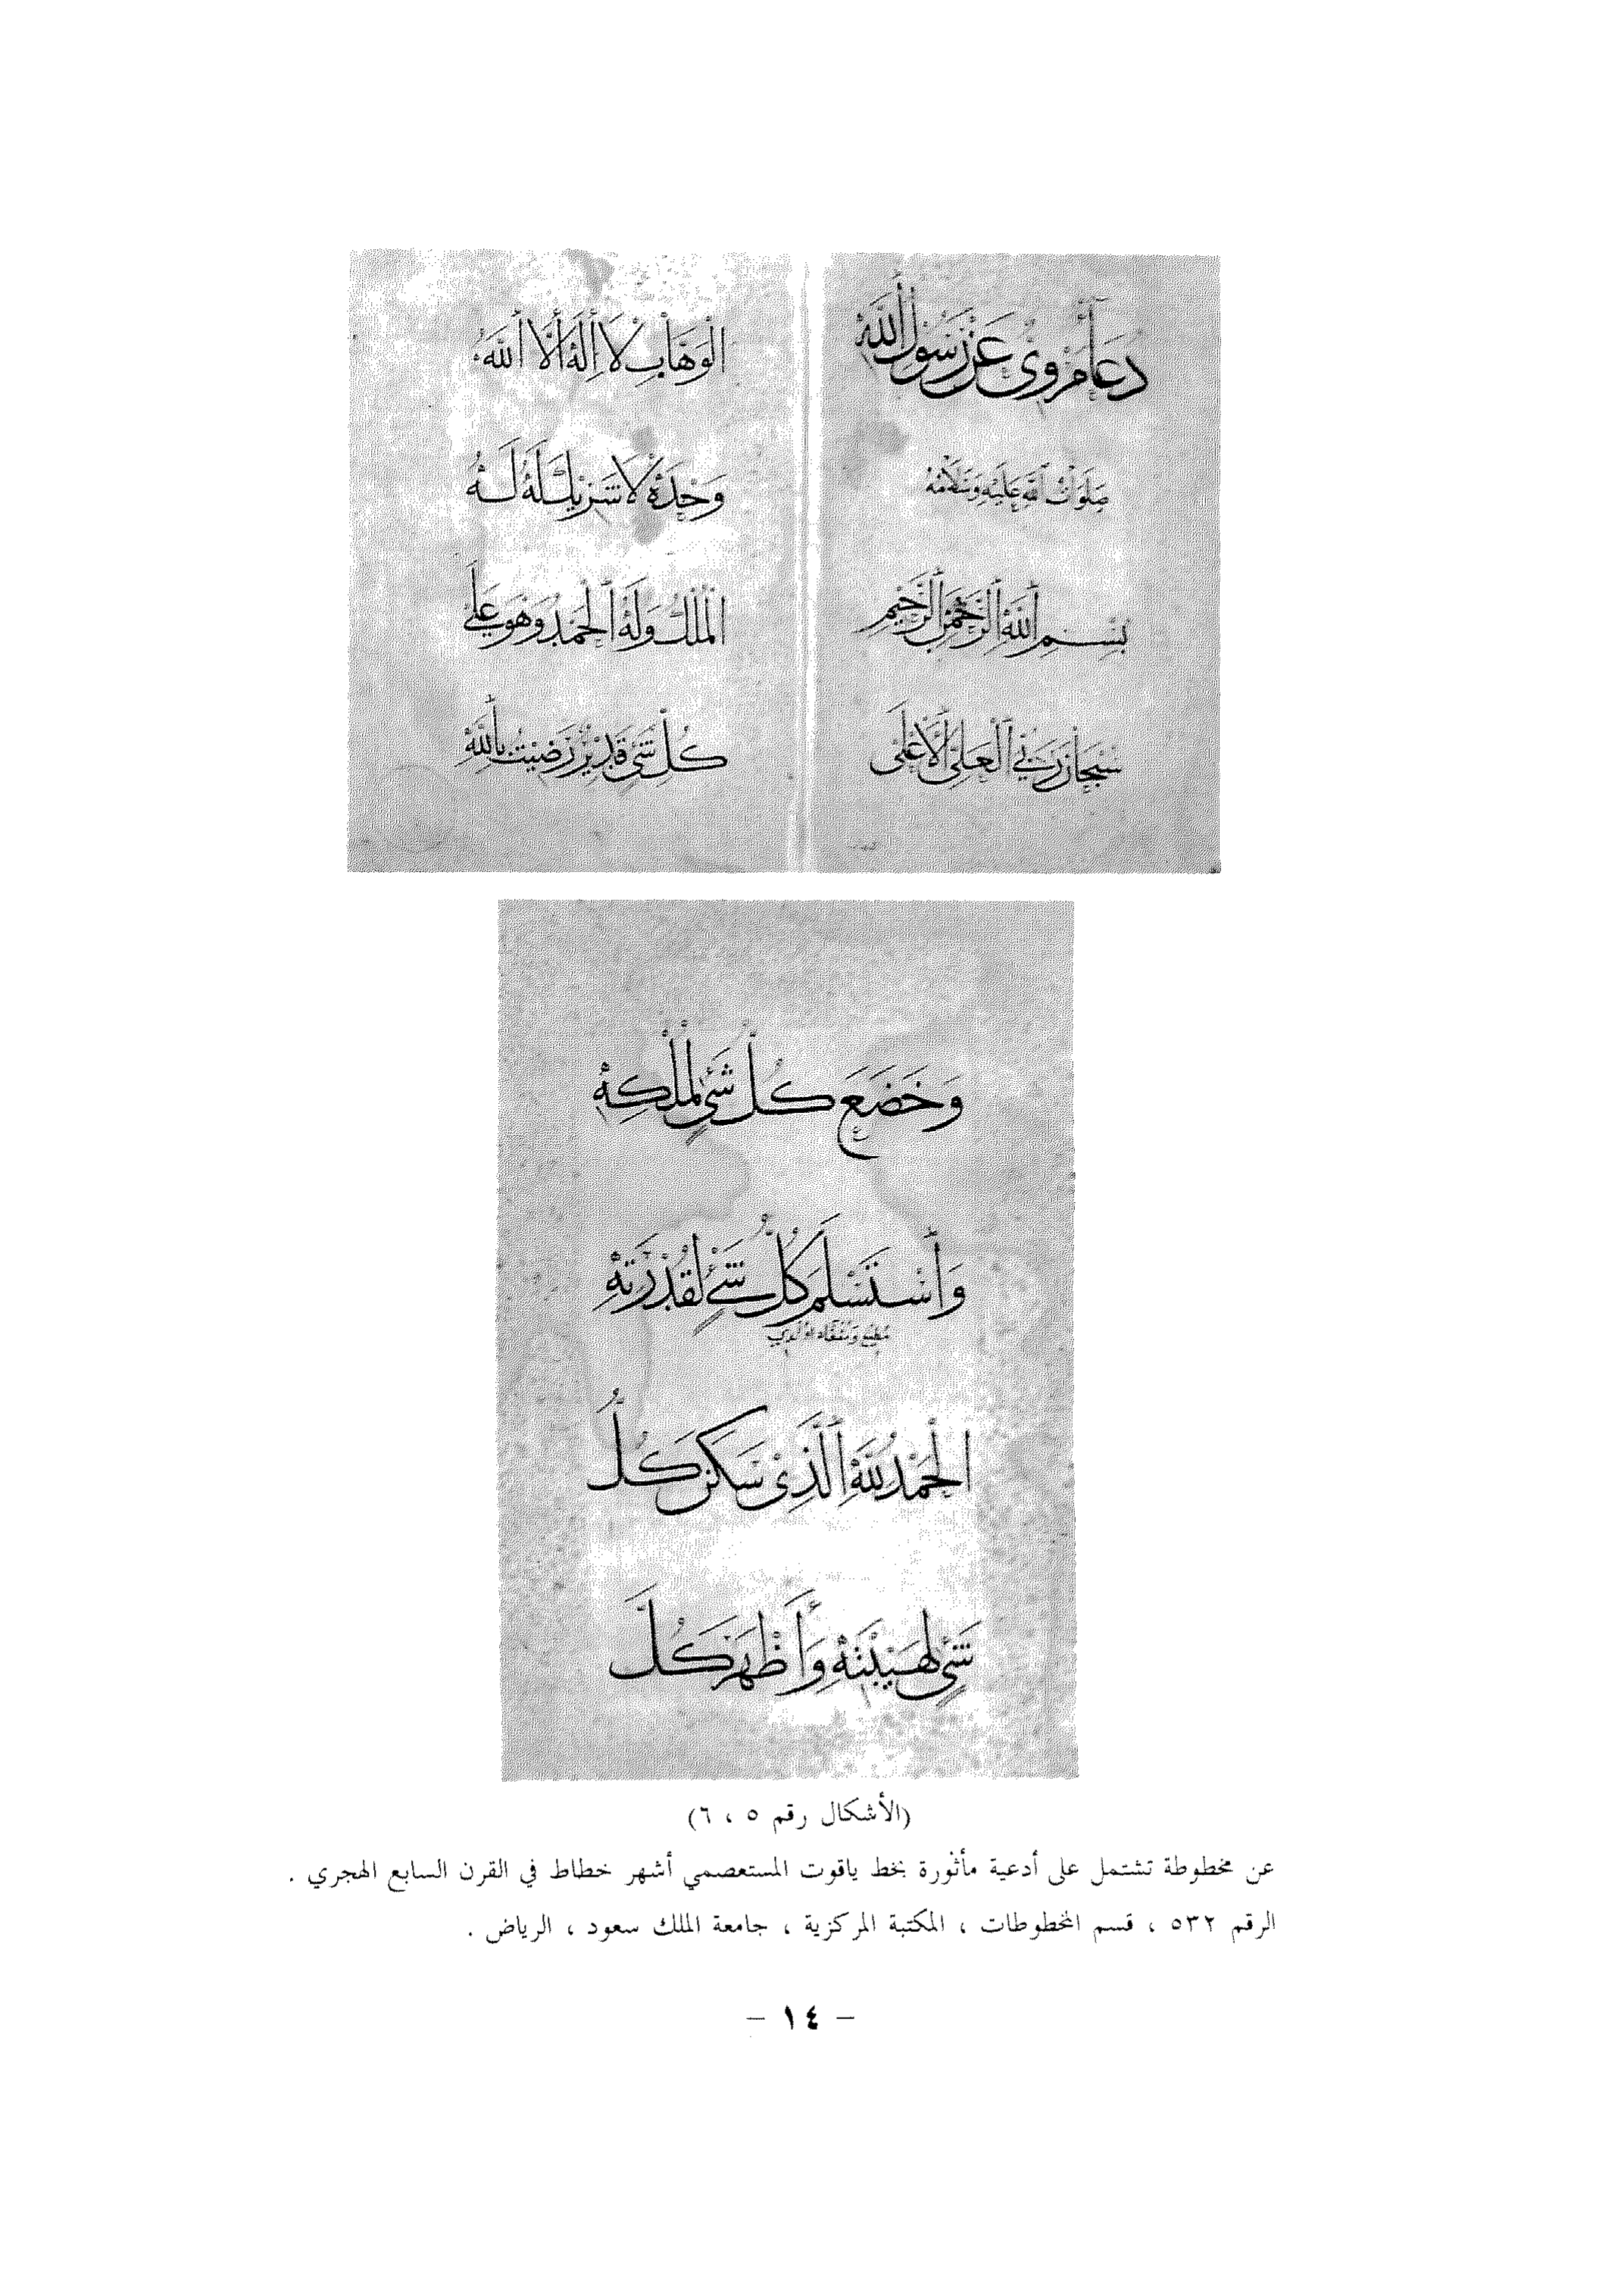 دُعَاءٌ مَرْوِيٌّ عَنْ رَسُولِ اللَّهِ
صَلَوَاتُ اللَّهِ عَلَيْهِ وَسَلَامُهُ
بِسْمِ اللَّهِ الرَّحْمٰنِ الرَّحِيمِ
سُبْحَانَ رَبِّيَ الْعَلِيِّ الْأَعْلَى
الْوَهَّابِ لَا إِلٰهَ إِلَّا اللَّهُ
وَحْدَهُ لَا شَرِيكَ لَهُ لَهُ
الْمُلْكُ وَلَهُ الْحَمْدُ وَهُوَ عَلَى
كُلِّ شَيْءٍ قَدِيرٌ رَضِيتُ بِاللَّهِ
وَخَضَعَ كُلُّ شَيْءٍ لِمُلْكِهِ
وَاسْتَسْلَمَ كُلُّ شَيْءٍ لِقُدْرَتِهِ
الْحَمْدُ لِلَّهِ الَّذِي سَكَنَ كُلُّ
شَيْءٍ لِهَيْبَتِهِ وَأَظْهَرَ كُلَّ
(الأشكال رقم ٥ ، ٦)
عن مخطوطة تشتمل على أدعية مأثورة بخط ياقوت المستعصمي أشهر خطاط في القرن السابع الهجري .
الرقم ٥٣٢ ، قسم المخطوطات ، المكتبة المركزية ، جامعة الملك سعود ، الرياض .
– ١٤ –